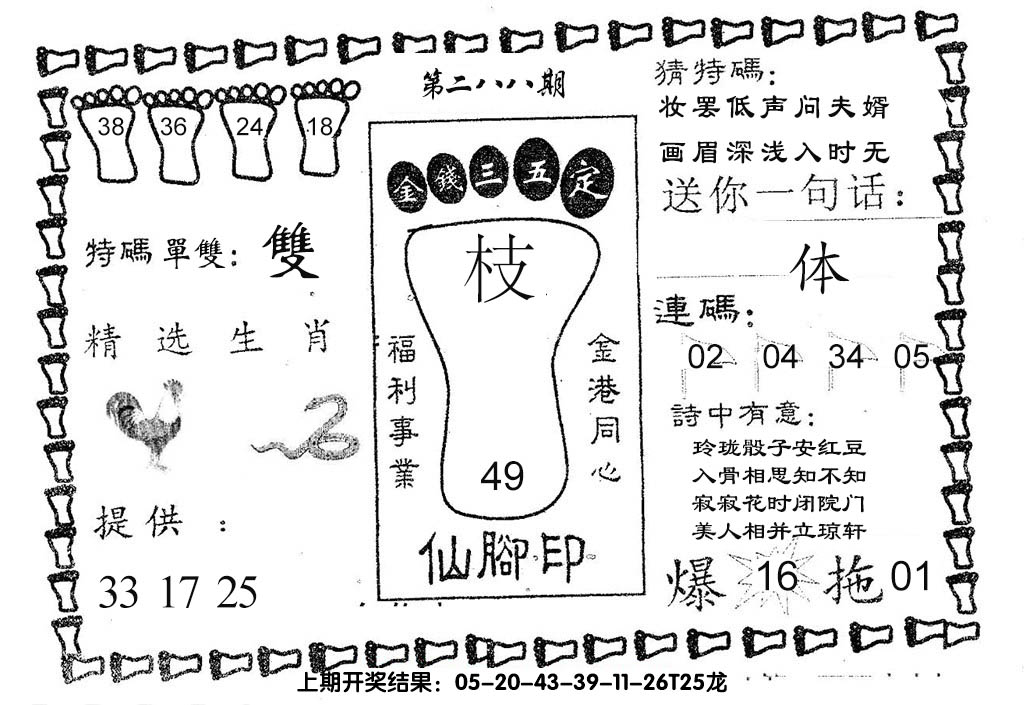 第二八八期
38 36 24 18
特碼單雙：雙
精选生肖
提供：
33 17 25
金錢三五定
枝
福利事業
金港同心
49
仙腳印
猜特碼：
妆罢低声问夫婿
画眉深浅入时无
送你一句话：
体
連碼：
02 04 34 05
詩中有意：
玲珑骰子安红豆
入骨相思知不知
寂寂花时闭院门
美人相并立琼轩
爆 16 拖 01
上期开奖结果：05-20-43-39-11-26T25龙